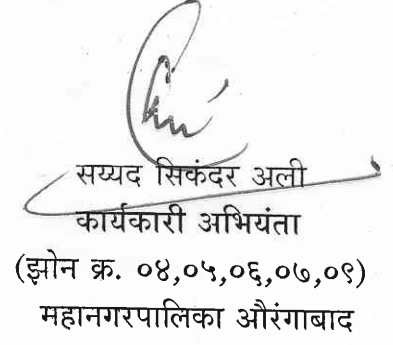 सय्यद सिकंदर अली
कार्यकारी अभियंता
(झोन क्र. ०४,०५,०६,०७,०९)
महानगरपालिका औरंगाबाद